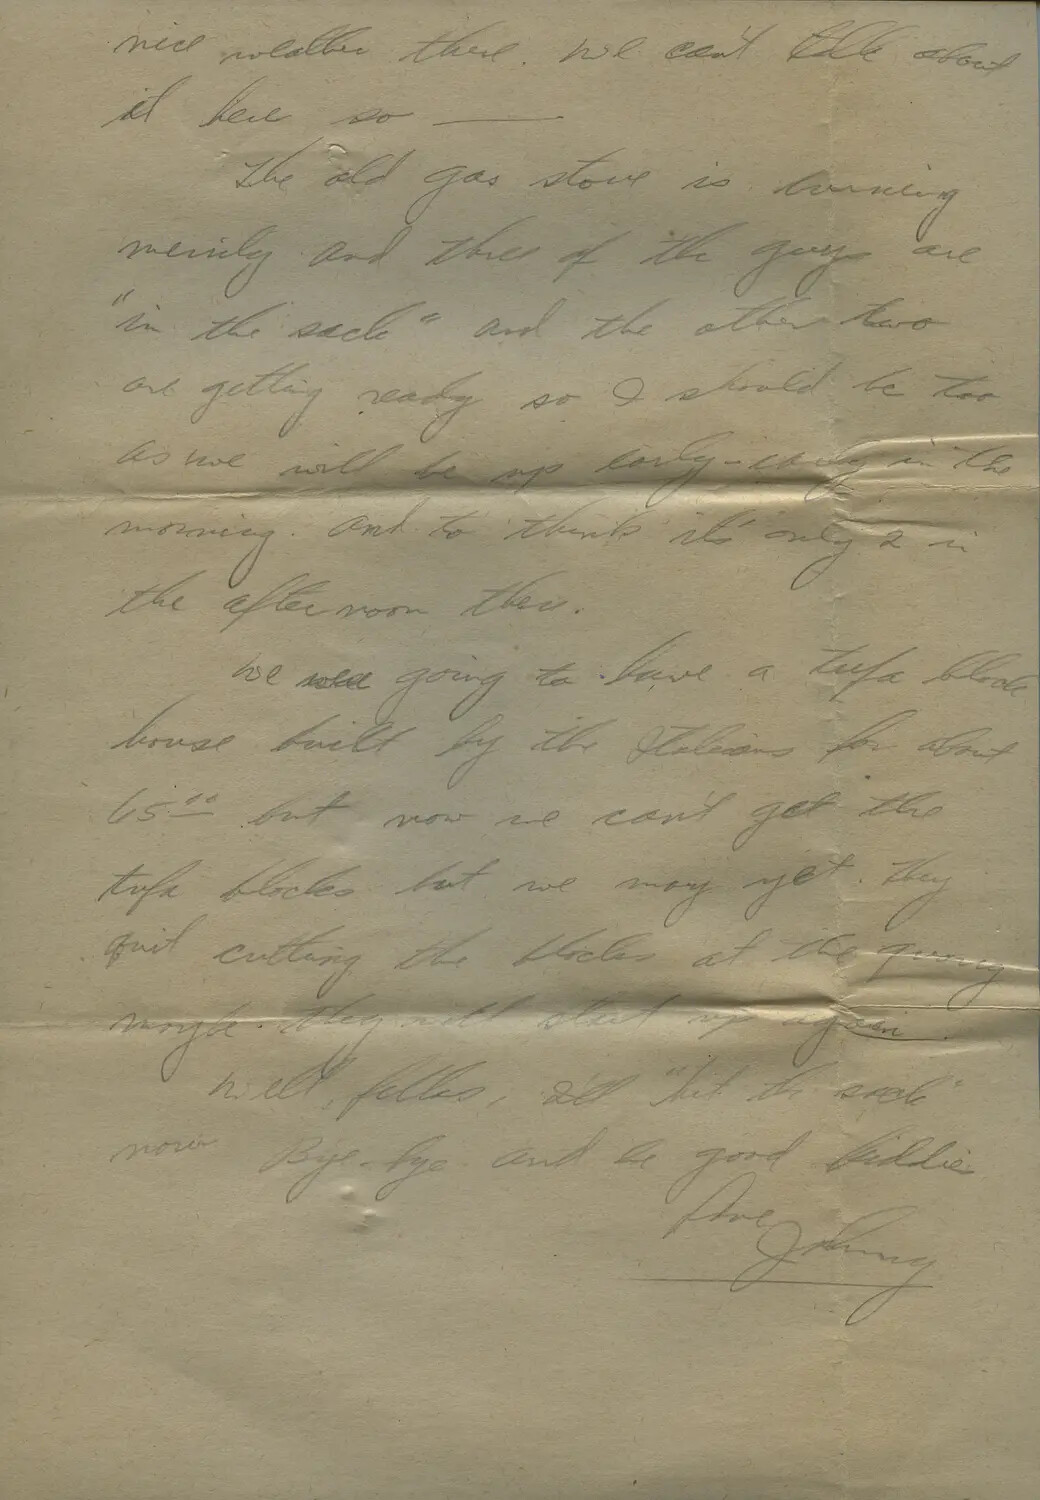 nice weather there. We can't talk about
it here so ———
The old gas stove is burning
merrily and three of the guys are
"in the sack" and the other two
are getting ready so I should be too
as we will be up early-early in the
morning. And to think it's only 2 in
the afternoon there.
We were going to have a tufa block
house built by the Italians for about
65⁰⁰ but now we can't get the
tufa blocks but we may yet. They
quit cutting the blocks at the quarry
maybe they will start up again.
Well, fellas, I'll "hit the sack"
now Bye-bye and be good kiddies
Love
Johnny